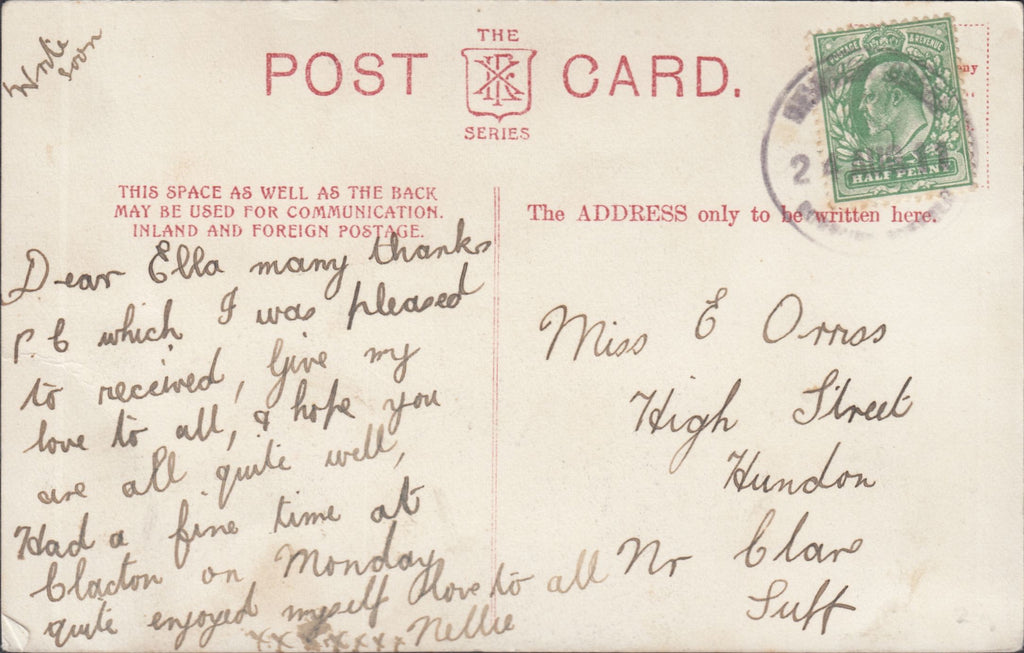 Write
soon
THE
POST CARD.
SERIES
POSTAGE & REVENUE
HALF PENNY
24
THIS SPACE AS WELL AS THE BACK
MAY BE USED FOR COMMUNICATION.
INLAND AND FOREIGN POSTAGE.
The ADDRESS only to be written here.
Dear Ella many thanks
P.C which I was pleased
to received, Give my
love to all, & hope you
are all quite well,
Had a fine time at
Clacton on Monday
quite enjoyed myself love to all
xx xxxxx Nellie
Miss E Orriss
High Street
Hundon
Nr Clare
Suff